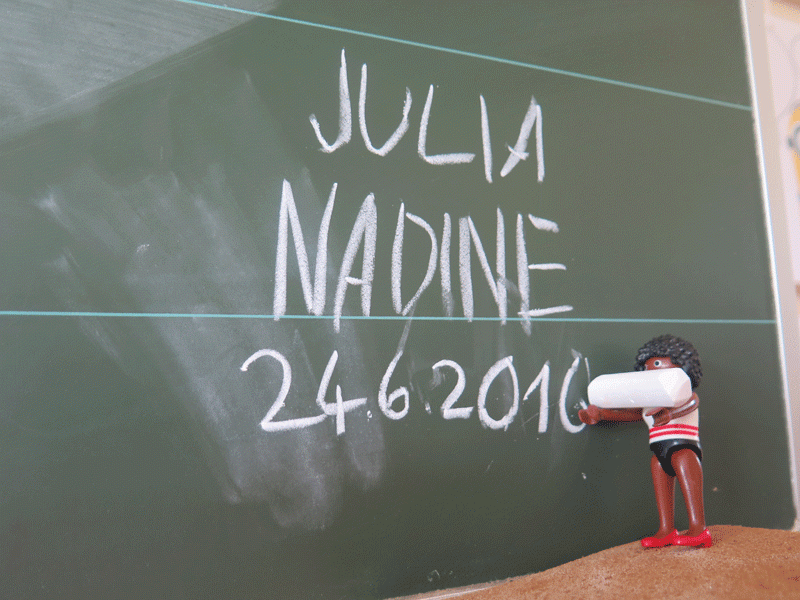 JULIA
NADINE
24.6.2010